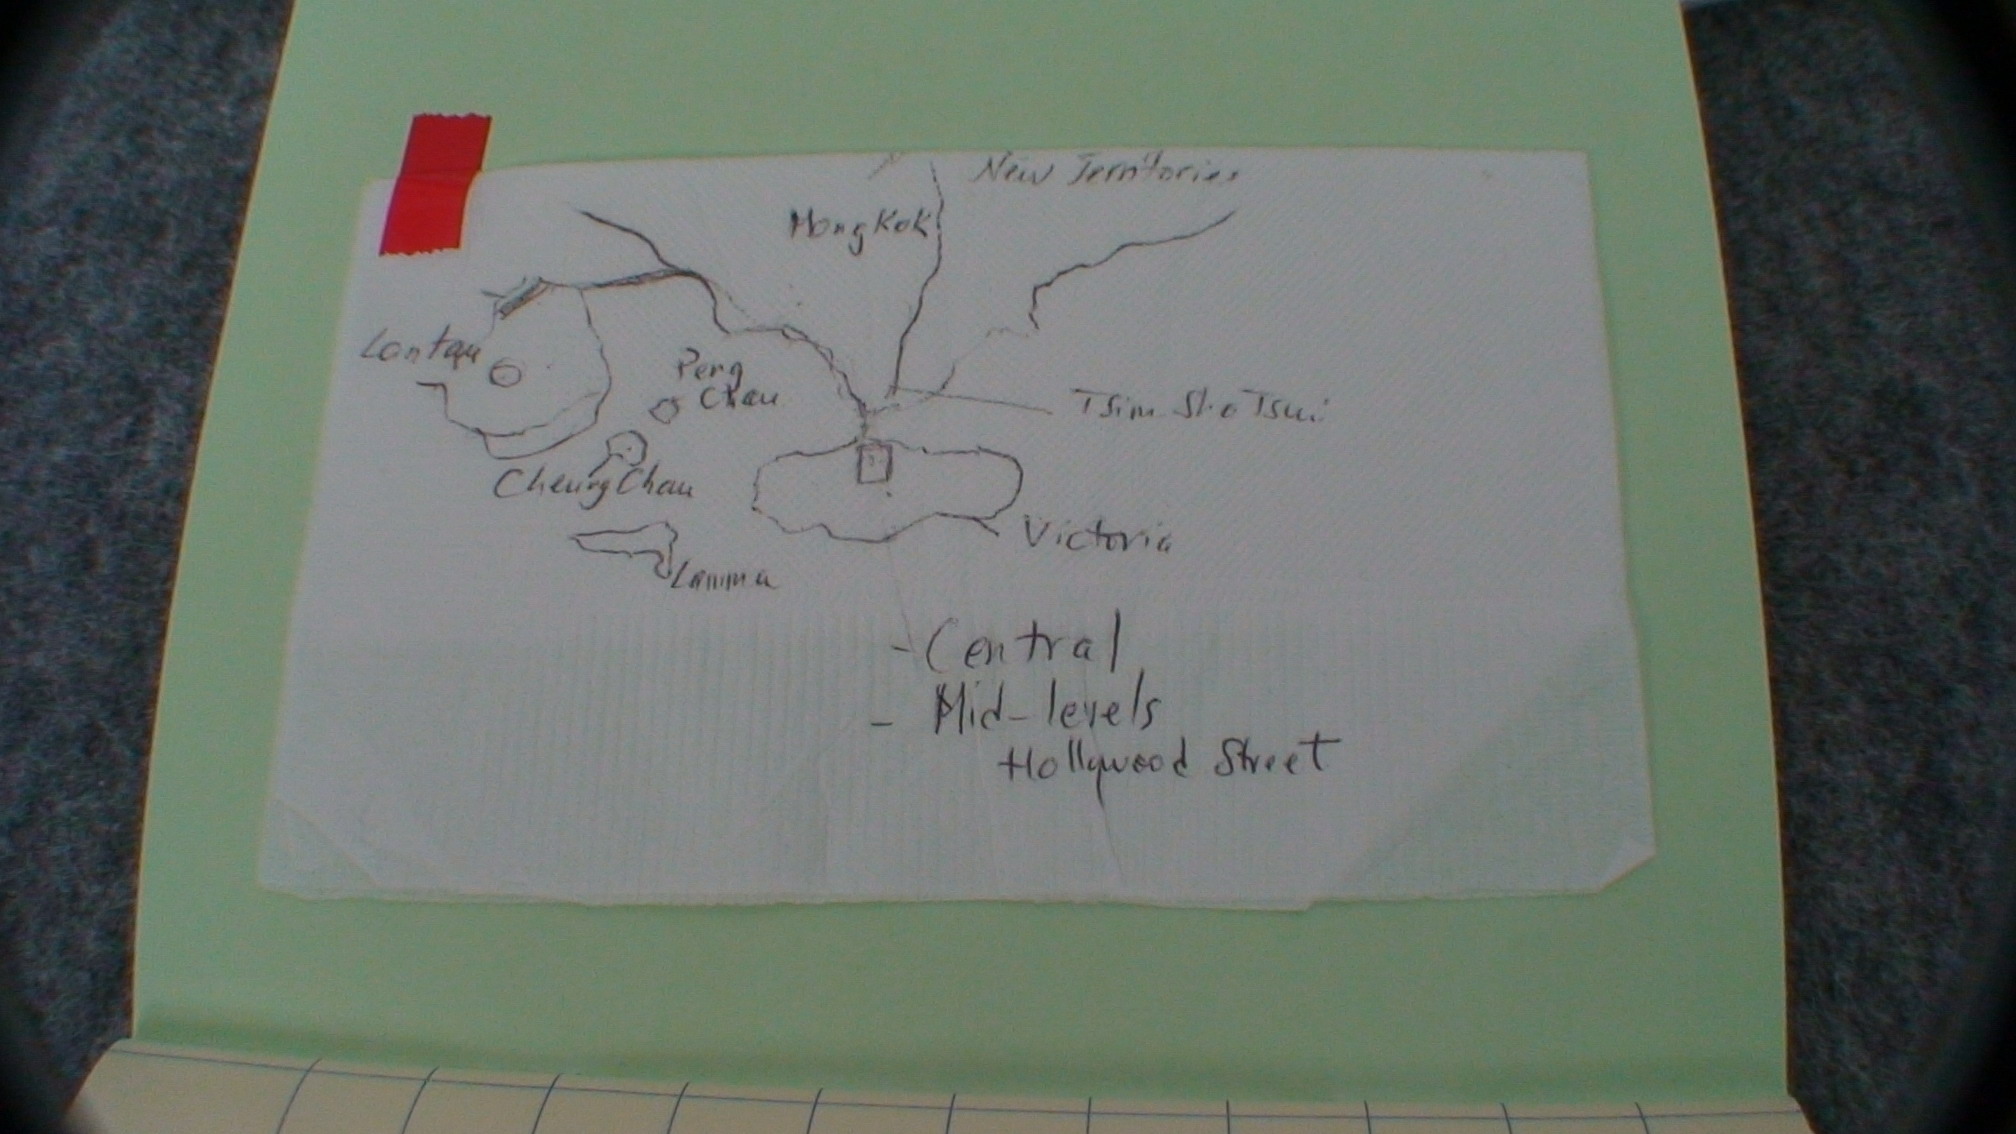 New Territories
MongKok
Lantau
Peng
Chau
Tsim Sha Tsui
Cheung Chau
Victoria
Lamma
- Central
- Mid-levels
Hollywood Street